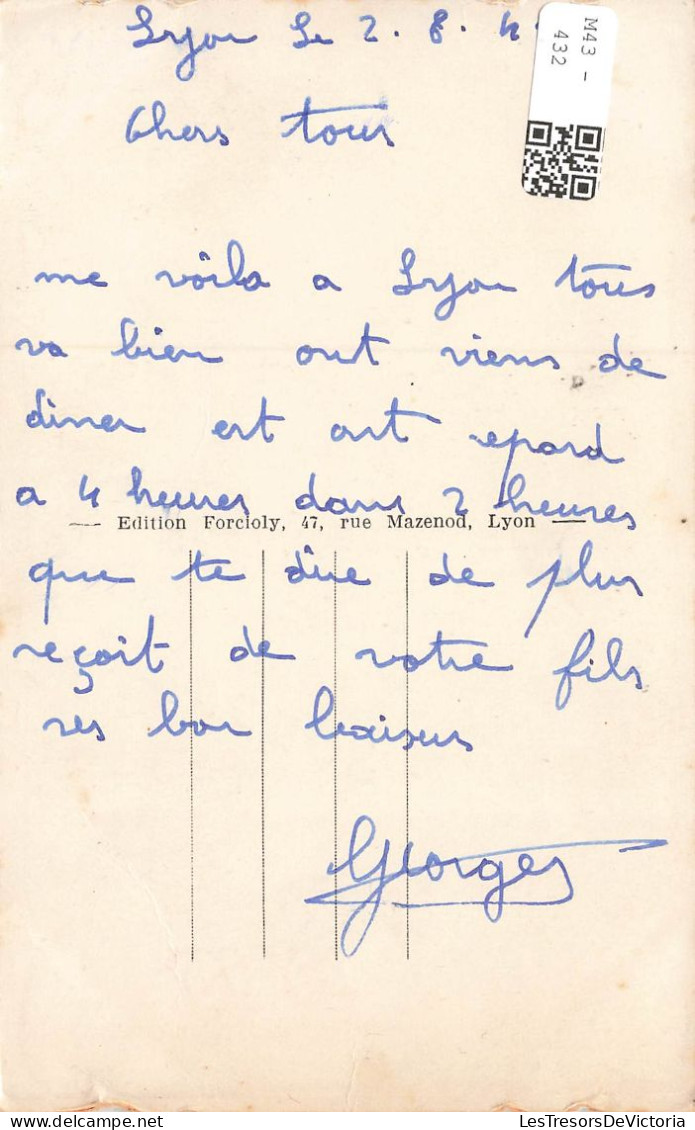 Lyon Le 2. 8. 4
M43 - 432
Chers tous
me voila a Lyon tous
va bien ont viens de
diner est ont repard
a 4 heures dans 2 heures
— Edition Forcioly, 47, rue Mazenod, Lyon —
que te dire de plus
reçoit de votre fils
ses bon baisers
Georges
LesTresorsDeVictoria